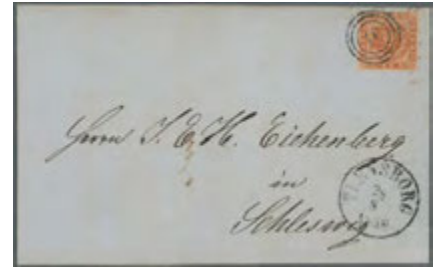 Herrn J. E. H. Eichenberg
in
Schleswig
FLENSBORG